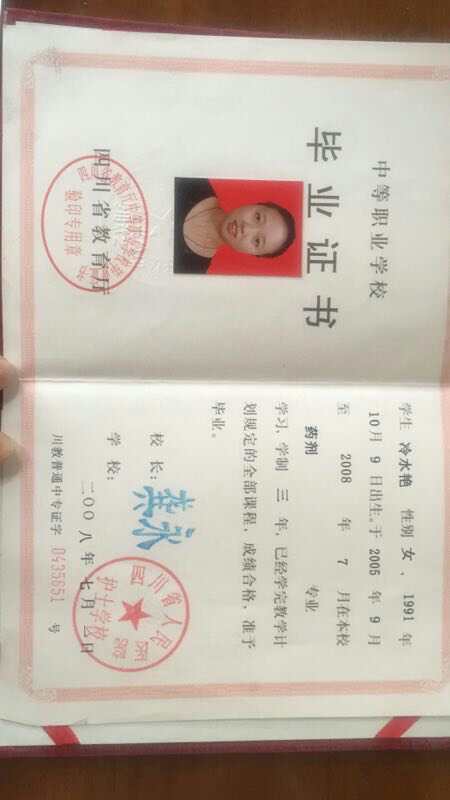 中等职业学校
毕业证书
四川省教育厅
验印专用章
学生 冷水艳 性别 女 、 1991 年
10 月 9 日出生,于 2005 年 9 月
至 2008 年 7 月在本校
药剂 专业
学习,学制 三 年,已经学完教学计
划规定的全部课程,成绩合格,准予
毕业。
校长:
学校:
四川省人民医院护士学校
二〇〇八年七月 日
川教普通中专证字 0435651 号